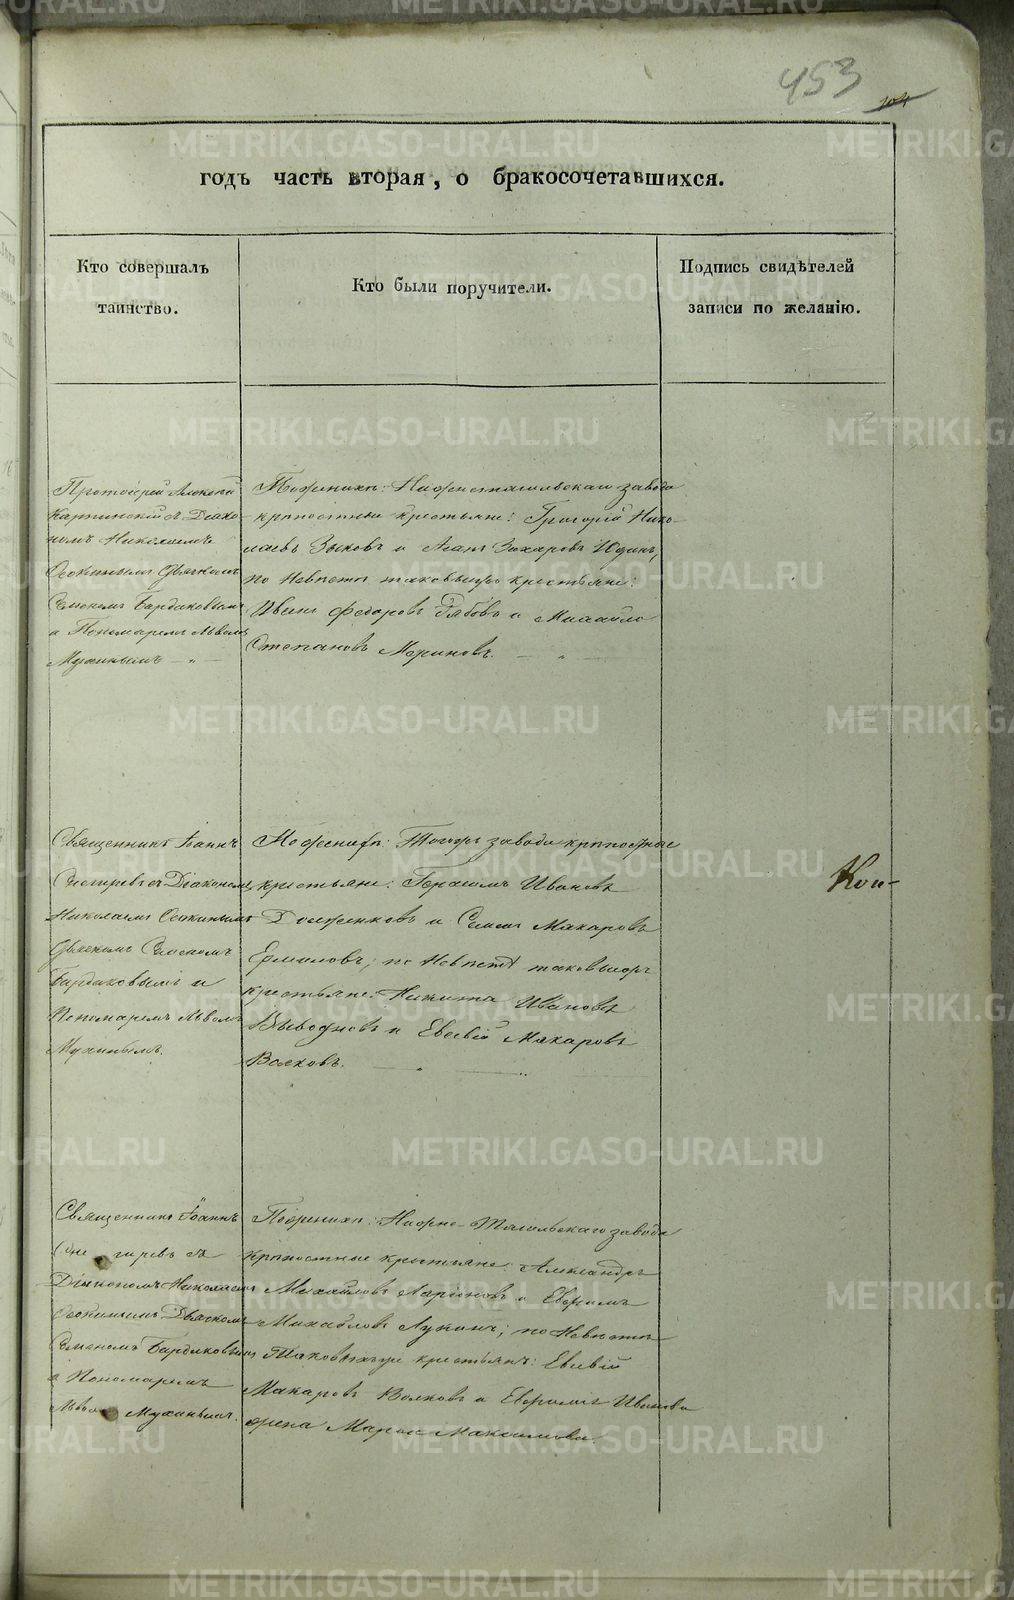 453
104
годъ часть вторая, о бракосочетавшихся.
Кто совершалъ
таинство.
Кто были поручители.
Подпись свидѣтелей
записи по желанію.
Протоіерей Алексѣй
Карпинскій съ Діако-
номъ Николаемъ
Осокинымъ Дьячкомъ
Семеномъ Бардаковымъ
и Пономаремъ Львомъ
Мухинымъ
По женихѣ: Нижнетагильскаго завода
крѣпостные крестьяне: Григорій Нико-
лаевъ Зыковъ и Захаровъ Юдинъ,
по Невѣстѣ таковыеже крестьяне:
Иванъ Федоровъ Рябовъ и Михайло
Степановъ Мериновъ.
Священникъ Іоаннъ
съ Діакономъ
Николаемъ Осокинымъ
Дьячкомъ Семеномъ
Бардаковымъ и
Пономаремъ Львомъ
Мухинымъ.
По женихѣ: Тогоже завода крѣпостные
крестьяне: Герасимъ Ивановъ
и Семенъ Макаровъ
Ермиловъ; по Невѣстѣ таковыеже
крестьяне: Никита Ивановъ
и Евсевій Макаровъ
Волковъ.
Кон-
Священникъ Іоаннъ
съ
Діакономъ Николаемъ
Осокинымъ Дьячкомъ
Семеномъ Бардаковымъ
и Пономаремъ
Львомъ Мухинымъ.
По женихѣ: Нижне-Тагильскаго завода
крѣпостные крестьяне: Александръ
Михайловъ Ларіоновъ и Ефремъ
Михайловъ Лукинъ; по Невѣстѣ
таковыеже крестьяне: Евсевій
Макаровъ Волковъ и Ефрема Иванова
жена Марья Максимова.
METRIKI.GASO-URAL.RU